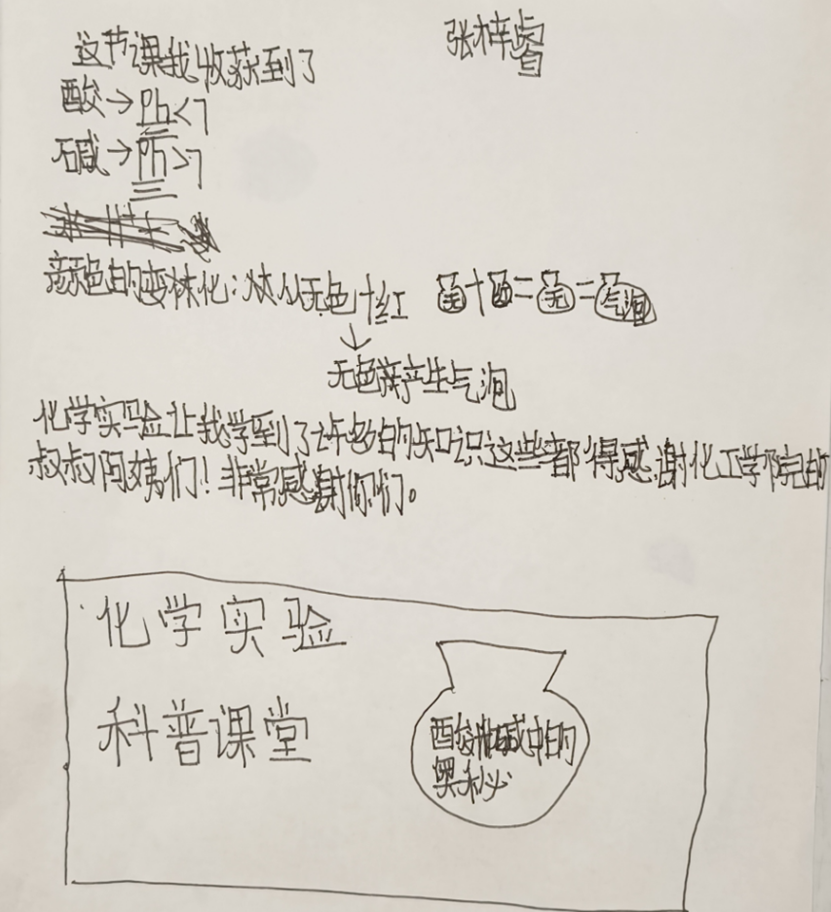 这节课我收获到了
张梓睿
酸→Ph<7
碱→Ph>7
颜色的变化:从无色+红 无+酸=无=气泡
↓
无色产生气泡
化学实验让我学到了许多的知识这些都得感谢化工学院的
叔叔阿姨们!非常感谢你们。
化学实验
科普课堂
酸和碱中的
奥秘